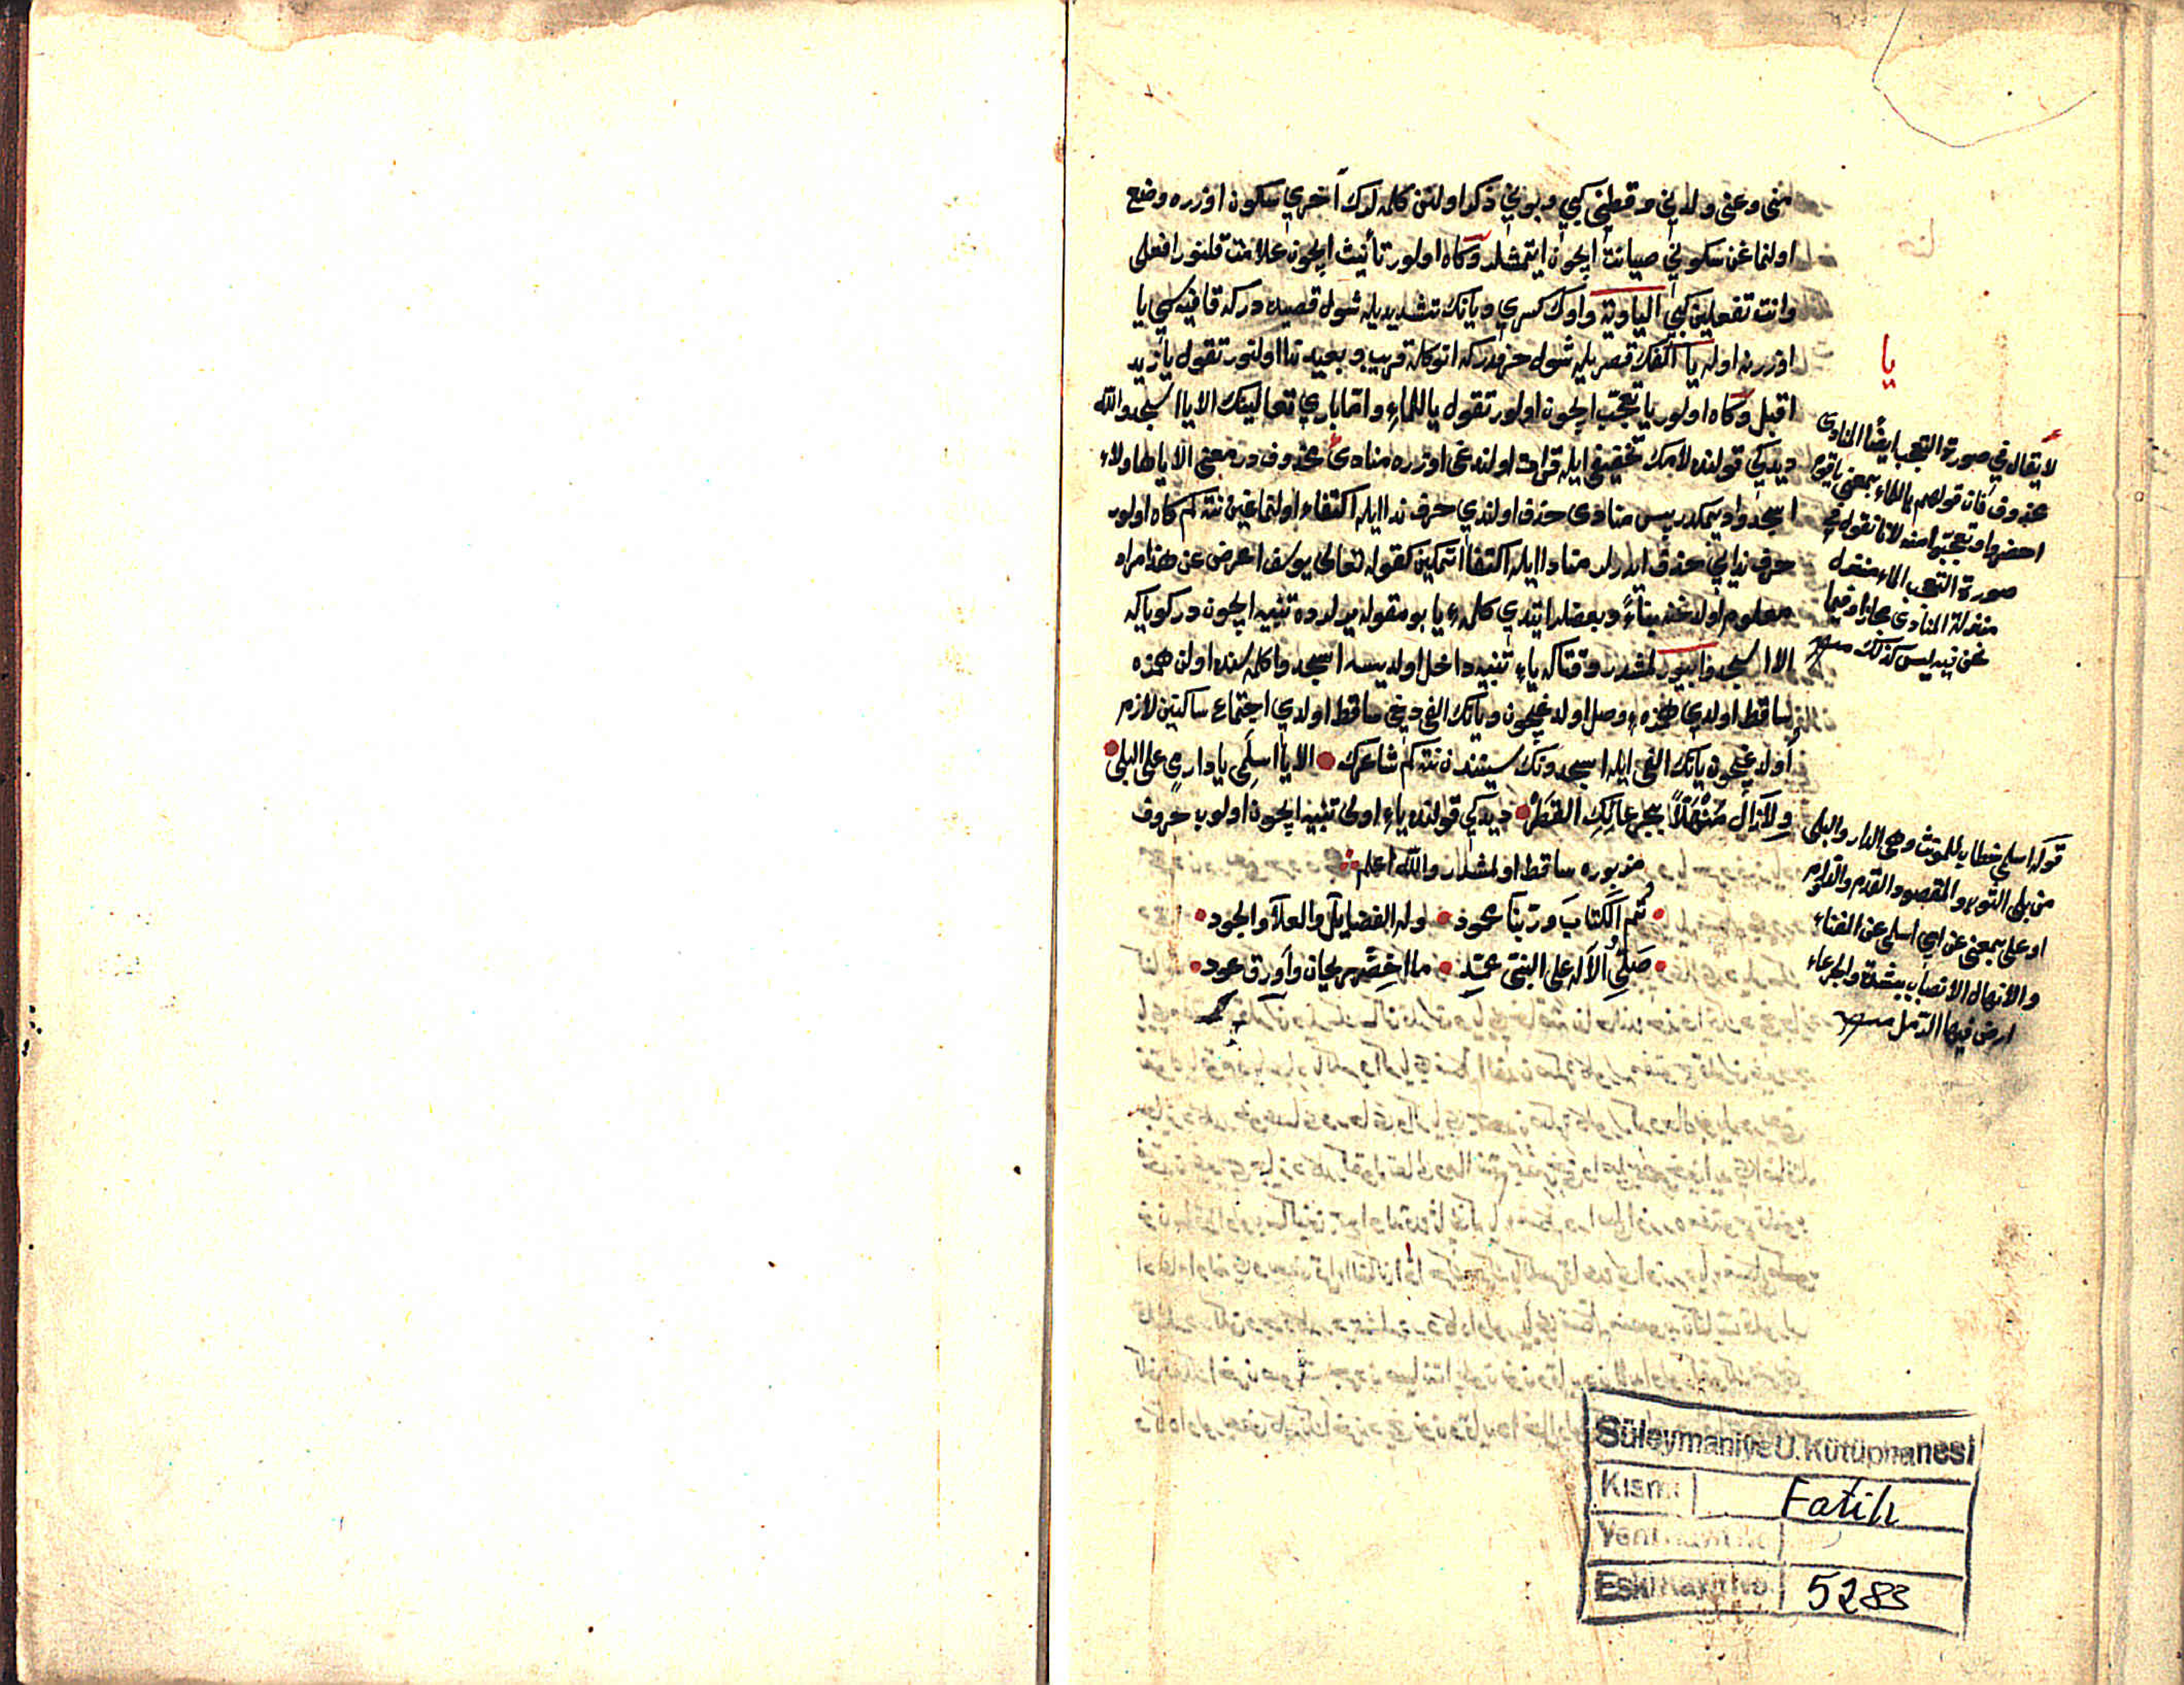 منى وعنى ولدنى وقطنى كبى وبونى ذكر اولنن كلمه لرك آخرى سكون اوزره وضع
اولنماغن سكونى صيانت ايچون ايتمشلر وكاه اولور تأنيث ايچون علامت قلنور افعلى
وانت تفعلين كبى الياوية واوك كسرى ويانك تشديديله شول قصيده در كه قافيه سى يا
اوزرينه اوله يا الفك قصريله شول حرفدر كه انوكله قريب وبعيد ندا اولنور تقول يا زيد
اقبل وكاه اولور يا تعجب ايچون اولور تقول يا للماء واما بارى تعالينك الا يا اسجدوا لله
ديدكى قولنده لامك تخفيفى ايله قرائت اولندغى اوزره منادى محذوف در معنى الا يا هاولاء
اسجدوا ديمكدر پس منادى حذف اولندى حرف ندا ايله اكتفاء اولنماغين نته كم كاه اولور
حرف ندايى حذف ايدرلر منادا ايله اكتفا اتمكين كقوله تعالى يوسف اعرض عن هذا مراد
معلوم اولدغنه بناءً وبعضلر ايتدى كلمهء يا بو مقوله يرلرده تنبيه ايچون در كويا كه
الا اسجدوا بيورلمشدر وقتا كه ياء تنبيه داخل اولديسه اسجدوا كلمه سنده اولن همزه
ساقط اولدى همزهء وصل اولدغيچون ويانك الفى دخى ساقط اولدى اجتماع ساكنين لازم
اولدغيچون يانك الفى ايله اسجدونك سيننده نته كم شاعرك الا يا اسلمى يا دار مى على البلى
ولا زال منهلاً بجرعائك القطر ديدكى قولنده ياء اولى تنبيه ايچون اولوب حروف
مزبوره ساقط اولمشدر والله اعلم
تم الكتاب وربنا محمود وله الفضايل والعلا والجود
صلى الاله على النبى محمد ما اخضر ريحان واورق عود
يا
لا يقال فى صورة التعجب ايضًا المنادى
محذوف فان قولهم يا للماء بمعنى يا قوم
احضروا وتعجبوا منه لانا نقول فى
صورة التعجب الماء منزل
منزلة المنادى مجازا وفيما
نحن فيه ليس كذلك
قوله اسلمى خطاب للمونث وهى الدار والبلى
من بلى الثوب والمقصود القدم
او على بمعنى عن اى اسلمى عن الفناء
والانهلال الانصباب بشدة والجرعاء
ارض فيها الرمل
Süleymaniye U. Kütüphanesi
Kısmı Fatih
Yeni Kayıt No.
Eski Kayıt No. 5283